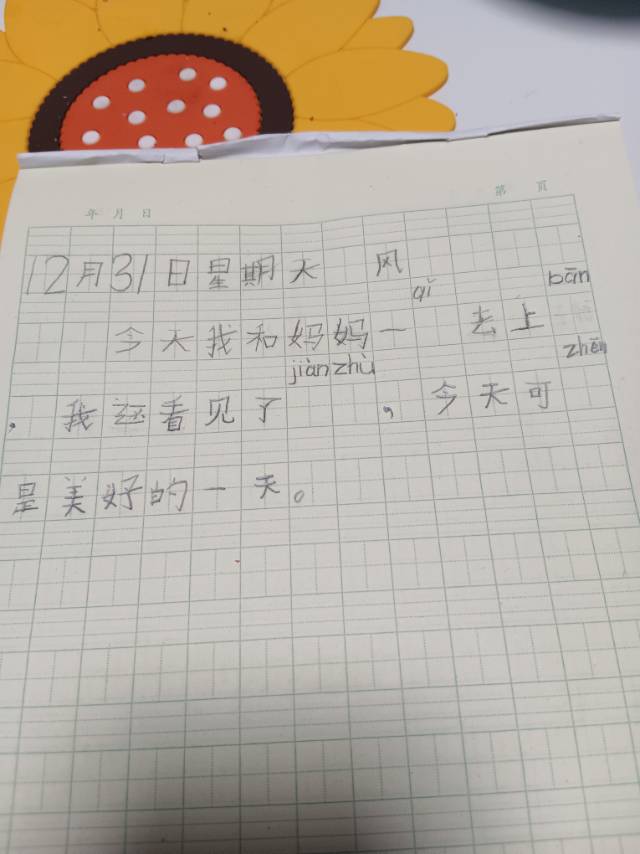 年 月 日
第 页
12月31日星期天 风
qǐ bān
今天我和妈妈一 去上
jiàn zhù zhēn
。我还看见了 ，今天可
是美好的一天。